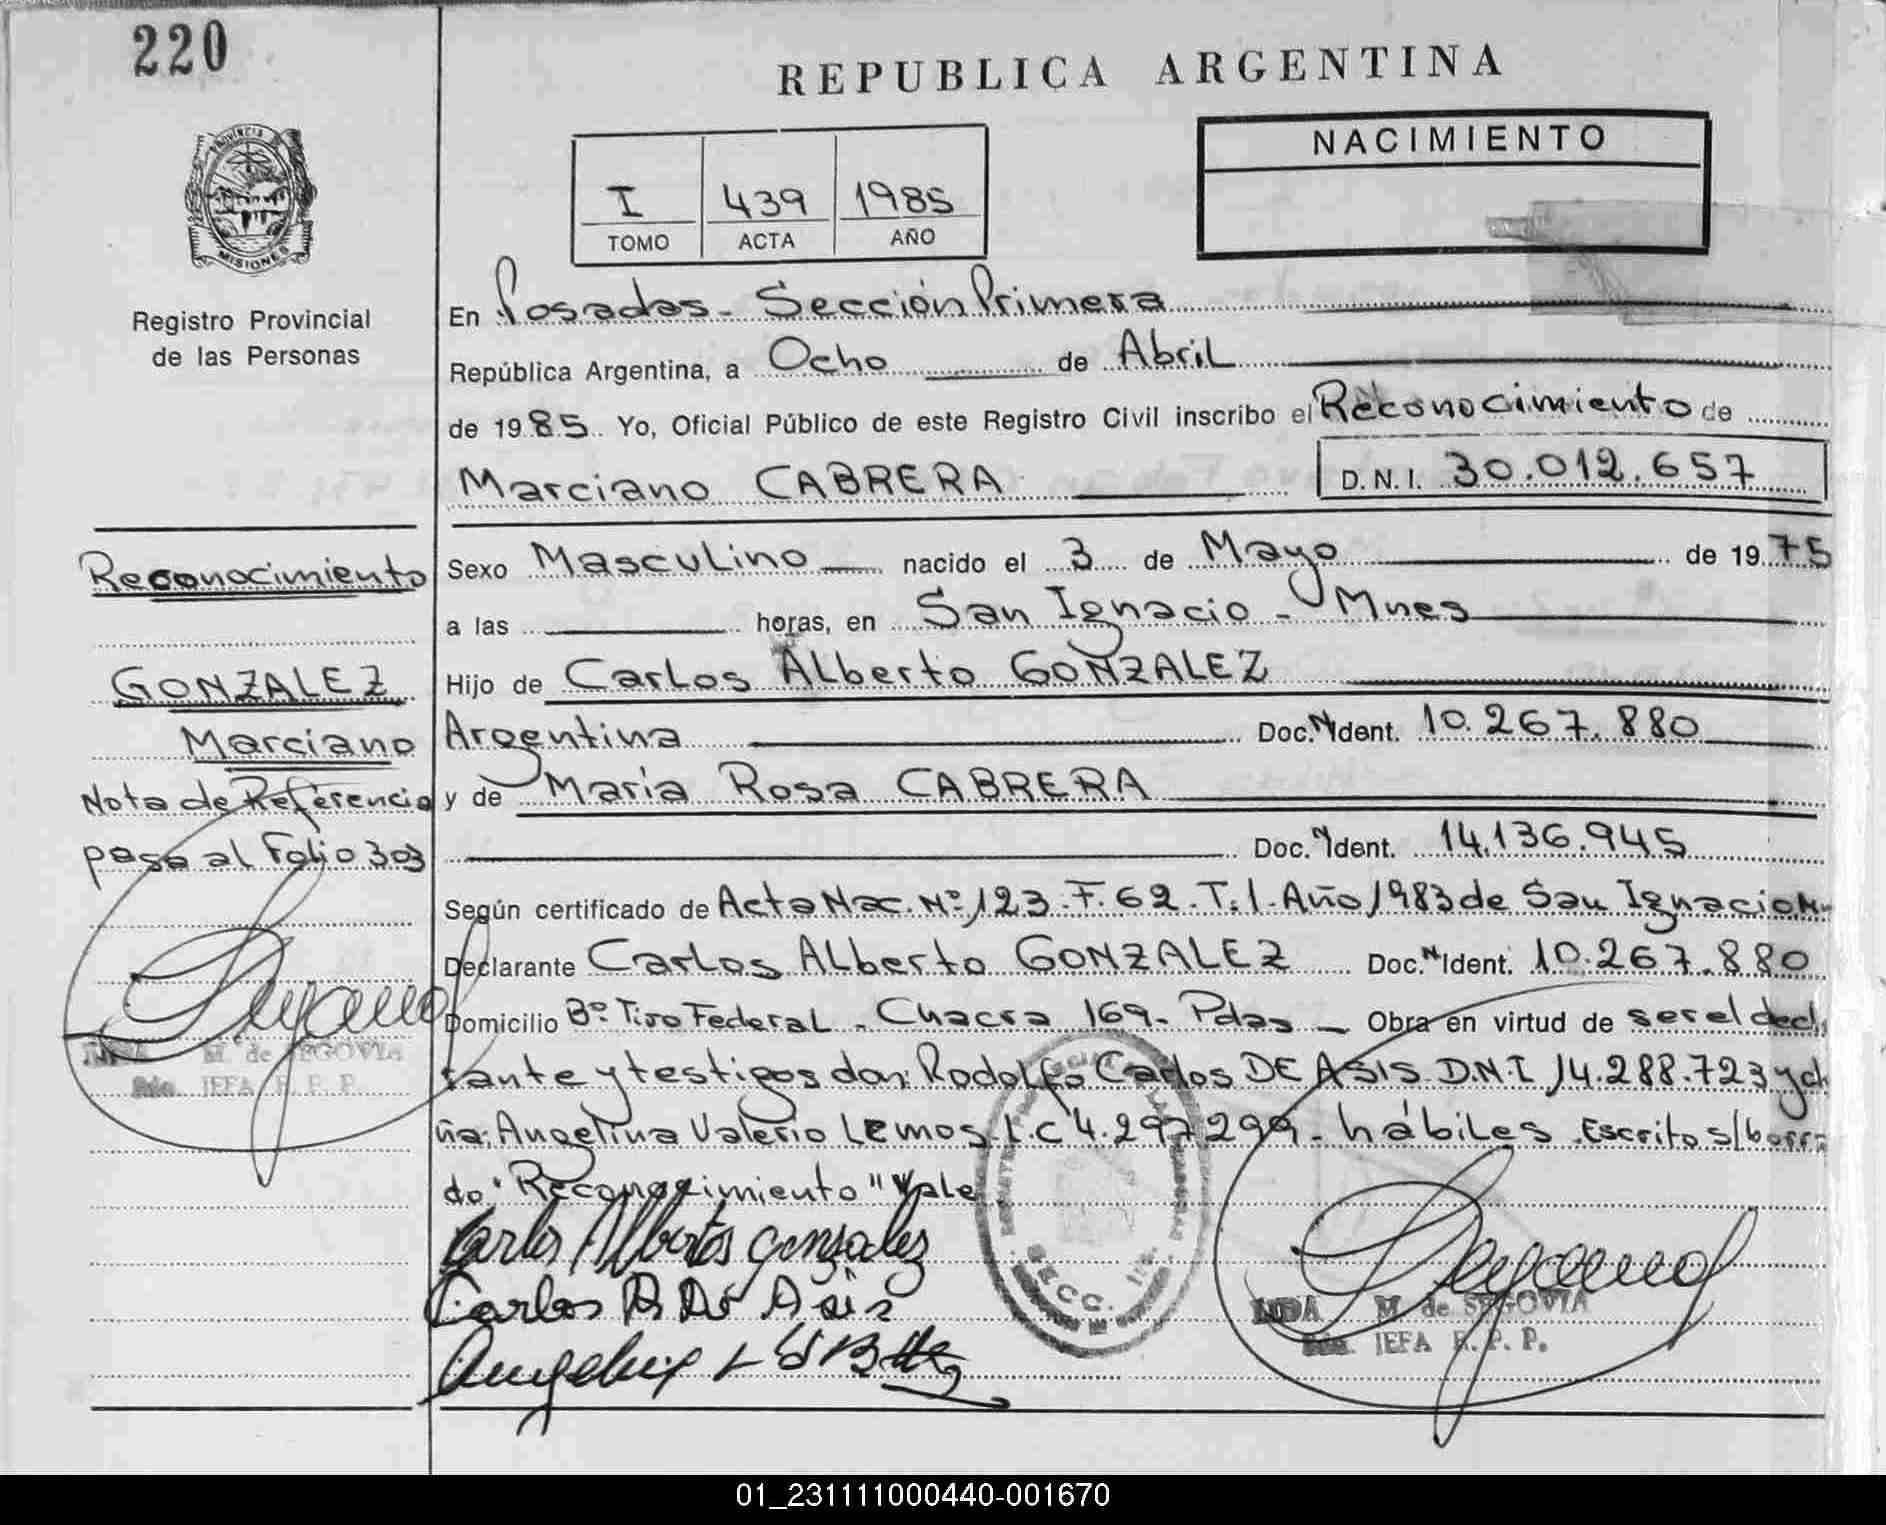 220
REPUBLICA ARGENTINA
NACIMIENTO
I 439 1985
TOMO ACTA AÑO
PROVINCIA
MISIONES
Registro Provincial
de las Personas
En Posadas - Sección Primera
República Argentina, a Ocho de Abril
de 1985. Yo, Oficial Público de este Registro Civil inscribo el Reconocimiento de
Marciano CABRERA D.N.I. 30.012.657
Reconocimiento
GONZALEZ
Marciano
Nota de Referencia
pasa al Folio 303
M. de SEGOVIA
JEFA R. P. P.
Sexo Masculino nacido el 3 de Mayo de 1975
a las horas, en San Ignacio - Mnes
Hijo de Carlos Alberto GONZALEZ
Argentina Doc. N Ident. 10.267.880
y de María Rosa CABRERA
Doc. N Ident. 14.136.945
Según certificado de Acta Nac. Nº 123. F. 62. T. 1. Año 1983 de San Ignacio M.
Declarante Carlos Alberto GONZALEZ Doc. N Ident. 10.267.880
Domicilio Bº Tiro Federal - Chacra 169 - Pdas - Obra en virtud de ser el decla
rante y testigos don: Rodolfo Carlos DE ASIS D.N.I 14.288.723 y do
ña: Angelina Valerio LEMOS L.C 4.297.299 - hábiles. Escrito s/borra
do "Reconocimiento" Vale
Carlos Alberto Gonzalez
Carlos R De Asis
SECC. 1ra.
LIDA M. de SEGOVIA
JEFA R. P. P.
01_231111000440-001670